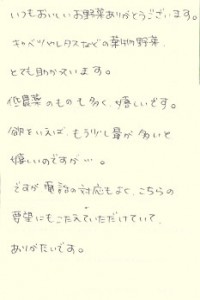 いつもおいしいお野菜ありがとうございます。
キャベツやレタスなどの葉物野菜、
とても助かっています。
低農薬のものも多く、嬉しいです。
欲をいえば、もう少し量が多いと
嬉しいのですが…。
ですが電話の対応もよく、こちらの
要望にもこたえていただけていて、
ありがたいです。